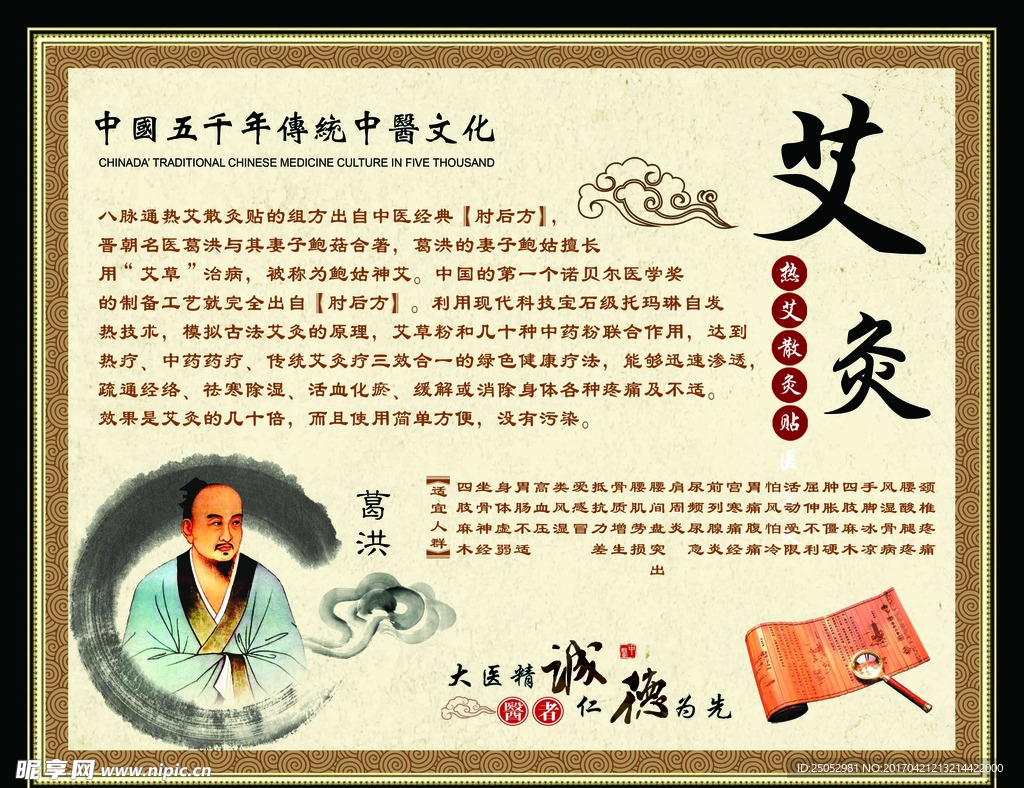 中國五千年傳統中醫文化
CHINADA' TRADITIONAL CHINESE MEDICINE CULTURE IN FIVE THOUSAND
艾灸
热艾散灸贴
医
八脉通热艾散灸贴的组方出自中医经典【肘后方】，
晋朝名医葛洪与其妻子鲍菇合著，葛洪的妻子鲍姑擅长
用“艾草”治病，被称为鲍姑神艾。中国的第一个诺贝尔医学奖
的制备工艺就完全出自【肘后方】。利用现代科技宝石级托玛琳自发
热技术，模拟古法艾灸的原理，艾草粉和几十种中药粉联合作用，达到
热疗、中药药疗、传统艾灸疗三效合一的绿色健康疗法，能够迅速渗透，
疏通经络、祛寒除湿、活血化瘀、缓解或消除身体各种疼痛及不适。
效果是艾灸的几十倍，而且使用简单方便，没有污染。
葛洪
【适宜人群】
四肢麻木
坐骨神经
身体虚弱
胃肠不适
高血压
类风湿
爱感冒
抵抗力差
骨质增生
腰肌劳损
腰间盘突出
肩周炎
尿频尿急
前列腺炎
宫寒痛经
胃痛腹痛
怕风怕冷
活动受限
屈伸不利
肿胀僵硬
四肢麻木
手脚冰凉
风湿骨病
腰酸腿疼
颈椎疼痛
大医精诚
中醫
醫者仁德为先
昵享网 www.nipic.cn
ID:25052981 NO:20170421213214422000